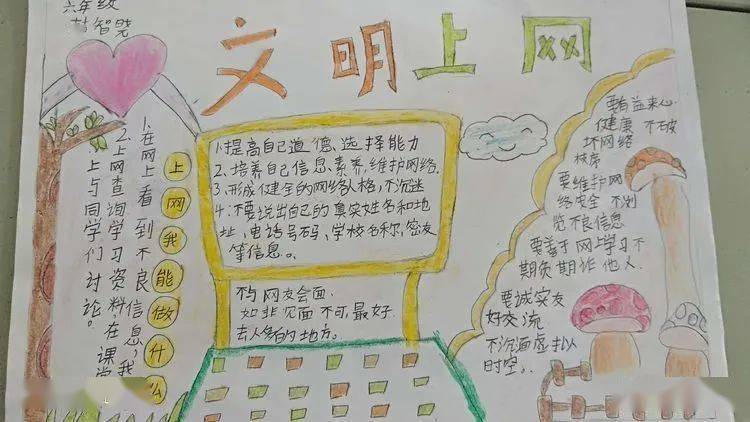 六年级
文明上网
1.提高自己道德、选择能力
2、培养自己信息、素养,维护网络.
3、形成健全的网络人格,不沉迷
4:不要说出自己的真实姓名和地
址、电话号码、学校名称、密友
等信息。.
不与网友会面.
如非见面不可,最好.
去人多的地方。
上网我能做什么
1、在网上看到不良信息,我
2.上网查询学习资料在课堂
上与同学们讨论。
要有益来心
健康 不破
坏网络
秩序
要维护网
络安全 不浏
览不良信息
要善于网上学习不
期负期诈他人.
要诚实友
好交流
不沉湎虚拟
时空。.